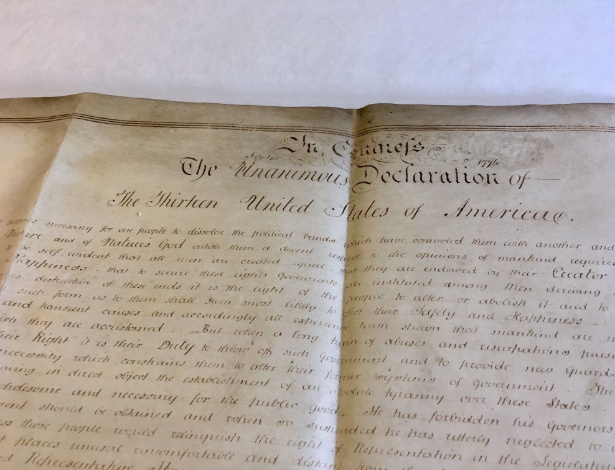 In Congress 1776
The Unanimous Declaration of
The Thirteen United States of America.
necessary for one people to dissolve the political bands which have connected them with another and
and of Natures God entitle them a decent respect to the opinions of mankind
be self evident that all men are created equal that they are endowed by their Creator
Happiness - that to secure these rights Governments are instituted among them deriving
destructive of these ends it is the right of the people to alter or abolish it and to
such form as to them shall seem most likely to effect their Safety and Happiness
and transient causes and accordingly all experience hath shewn that mankind are
they are accustomed. But when a long train of abuses and usurpations
their Right it is their Duty to throw off such government and to provide new Guards
necessity which constrains them to alter their former systems of Government. The
having in direct object the establishment of an absolute tyranny over these States
wholesome and necessary for the public good. He has forbidden his Governors
should be obtained and when so suspended he has utterly neglected to
those people would relinquish the right of Representation in the Legislature
at places unusual uncomfortable and distant
Representative